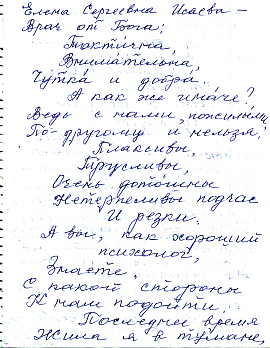 Елена Сергеевна Исаева –
Врач от Бога;
Тактична,
Внимательна,
Чутка и добра.
А как же иначе?
Ведь с нами, пожилыми
По-другому и нельзя,
Плаксивы,
Трусливы,
Очень дотошны
Нетерпеливы подчас
И резки.
А вы, как хороший
психолог,
Знаете,
С какой стороны
К нам подойти.
Последнее время
Жила я в тумане,